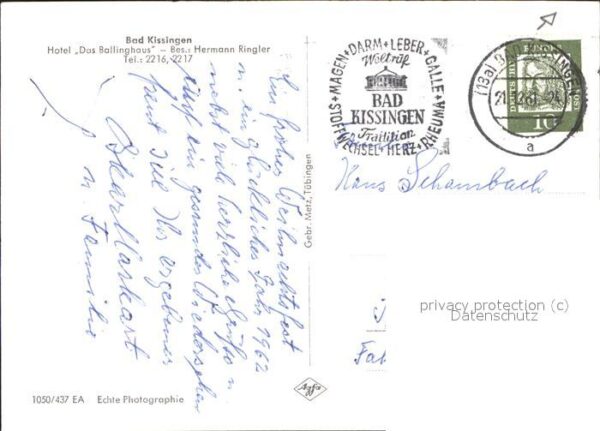 Bad Kissingen
Hotel „Das Ballinghaus" – Bes.: Hermann Ringler
Tel.: 2216, 2217
Ein frohes Weihnachtsfest
u. ein glückliches Jahr 1962
nebst viele herzliche Grüße u.
auf ein gesundes Wiedersehen
Ihr ergebener
Karl Markart
u. Familie
1050/437 EA Echte Photographie
Gebr. Metz, Tübingen
Agfa
STOFFWECHSEL • MAGEN • DARM • LEBER • GALLE • RHEUMA • HERZ
Weltruf
BAD
KISSINGEN
Tradition
(13a) BAD KISSINGEN
21.12.61
a
DEUTSCHE BUNDESPOST
10
Hans Schambach
Fab
privacy protection (c)
Datenschutz